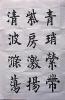 青瑣縈帶
紫房激揚
清波滌蕩